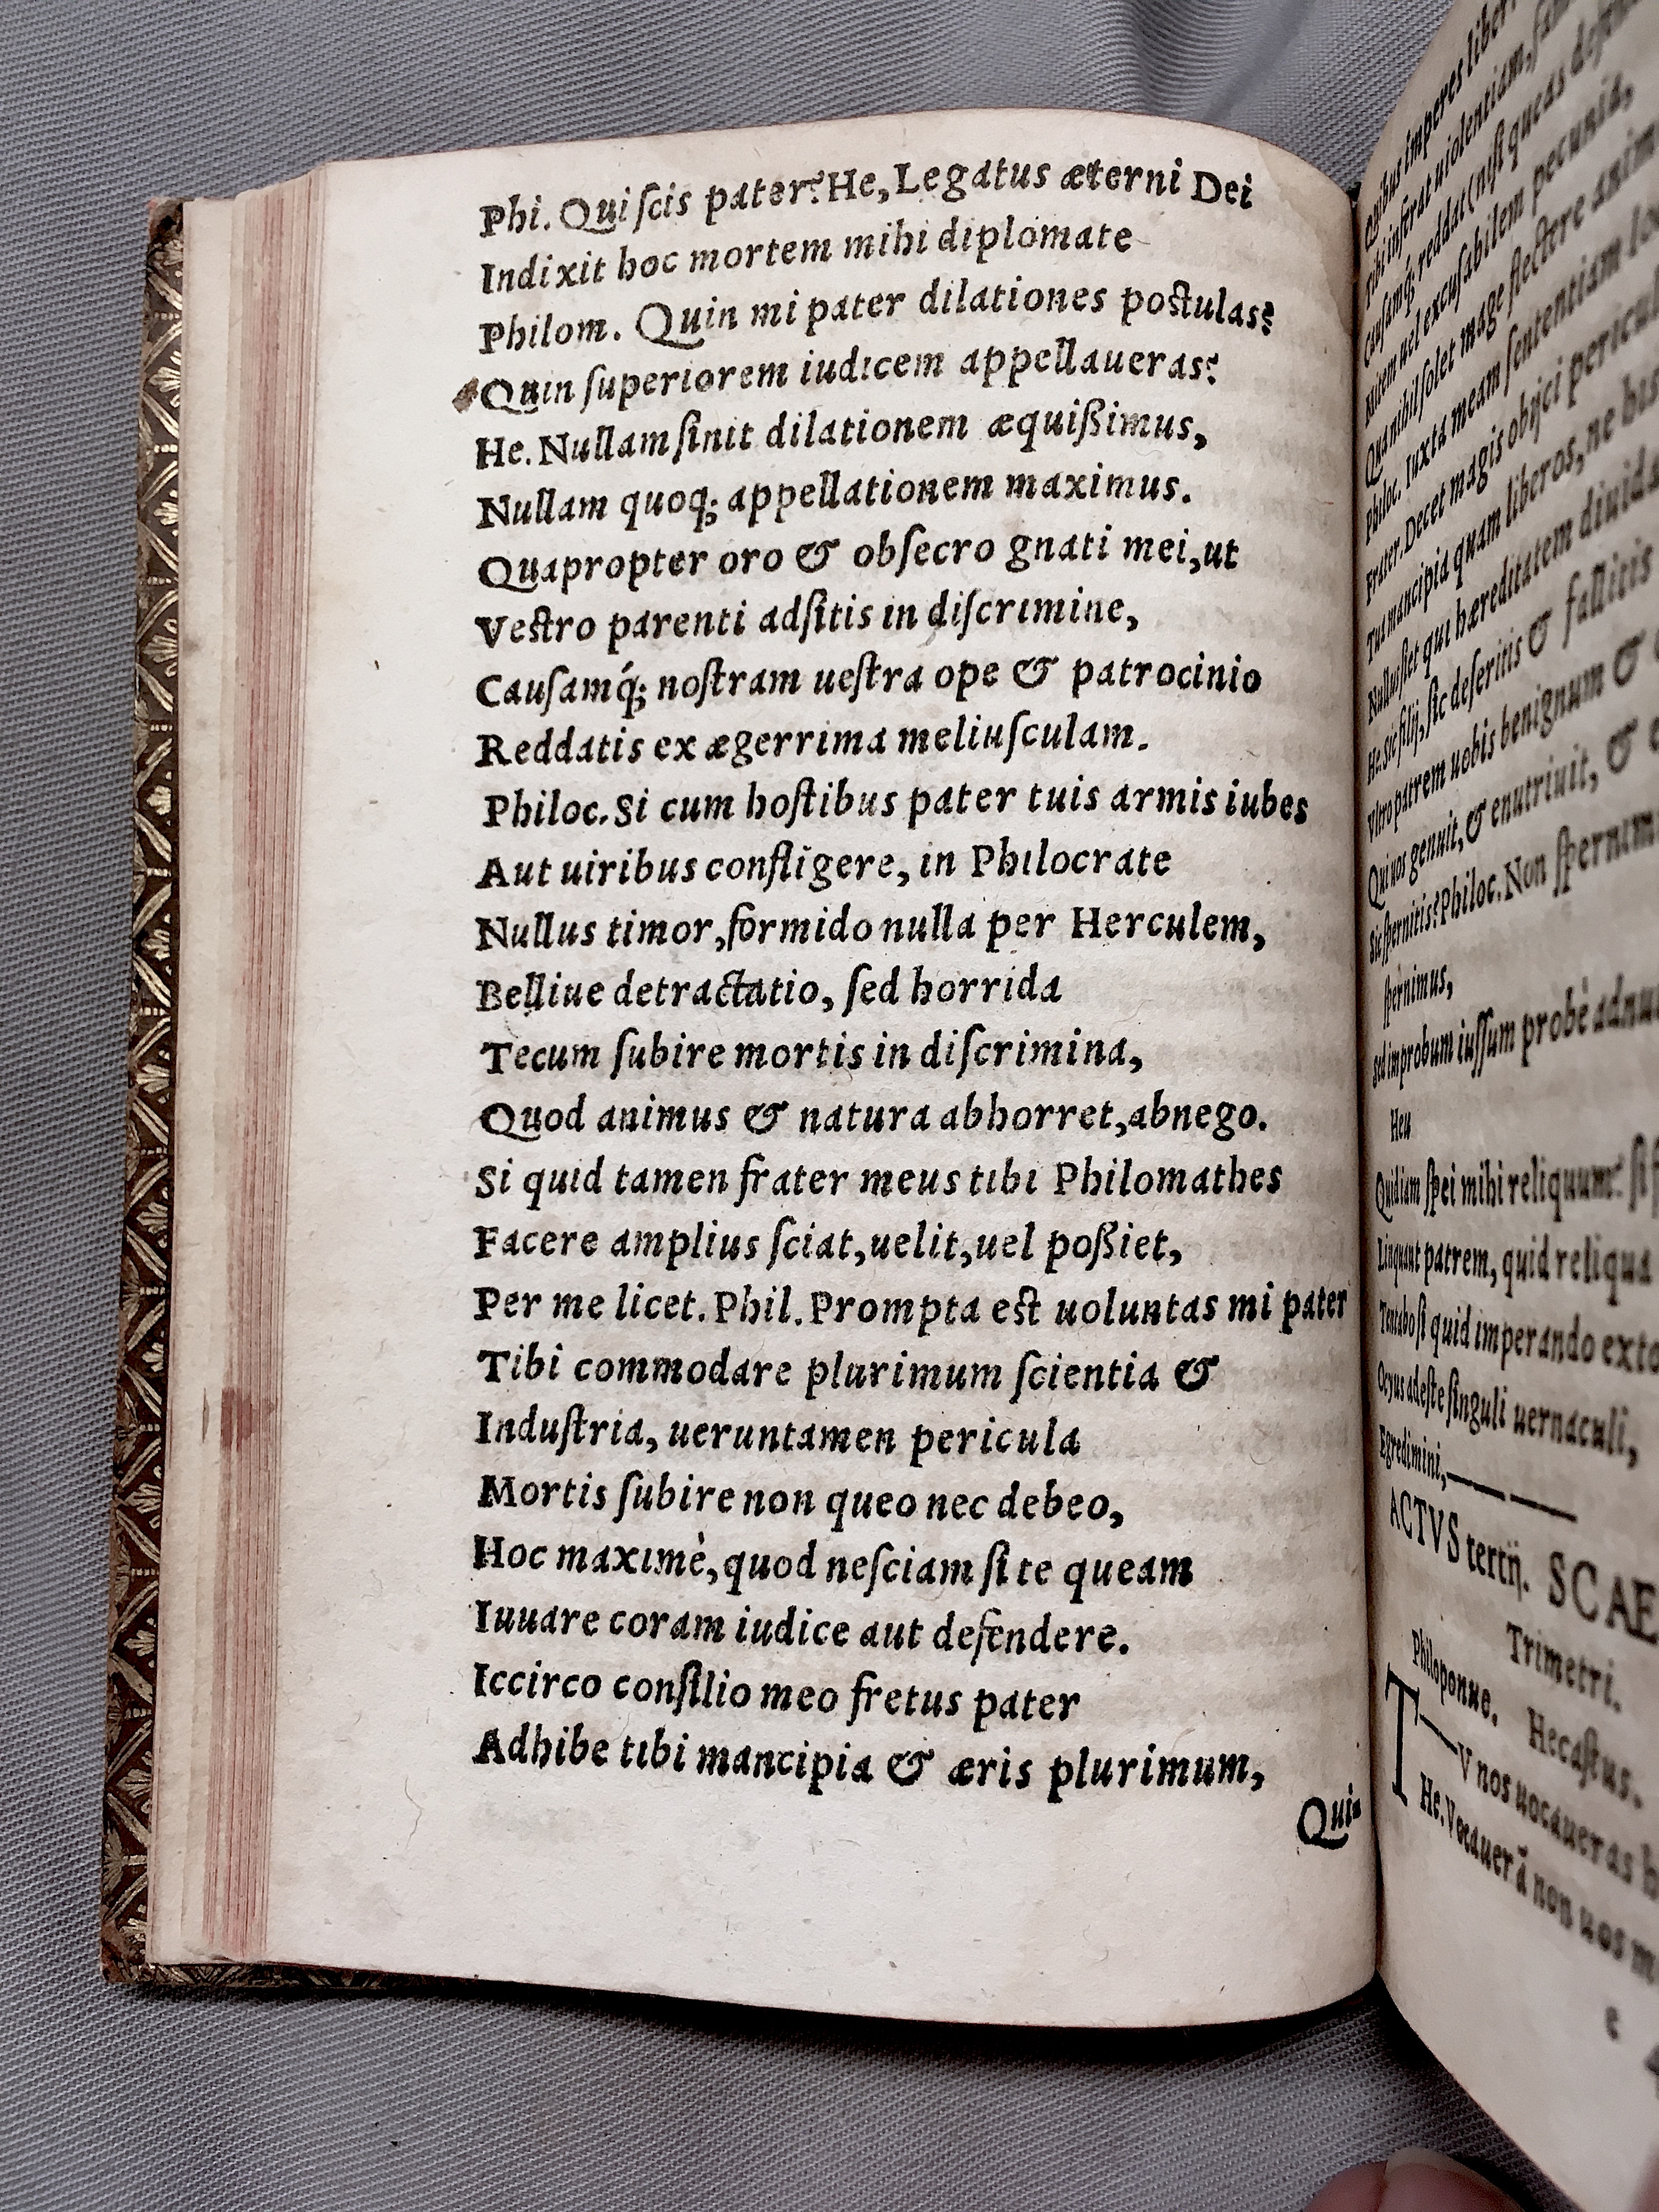 Phi. Qui ſcis pater? He, Legatus æterni Dei
Indixit hoc mortem mihi diplomate
Philom. Quin mi pater dilationes poſtulas?
Quin ſuperiorem iudicem appellaueras?
He. Nullam ſinit dilationem æquißimus,
Nullam quoq; appellationem maximus.
Quapropter oro & obſecro gnati mei, ut
Veſtro parenti adſitis in diſcrimine,
Cauſamq́; noſtram ueſtra ope & patrocinio
Reddatis ex ægerrima meliuſculam.
Philoc. Si cum hoſtibus pater tuis armis iubes
Aut uiribus confligere, in Philocrate
Nullus timor, formido nulla per Herculem,
Belliue detractatio, ſed horrida
Tecum ſubire mortis in diſcrimina,
Quod animus & natura abhorret, abnego.
Si quid tamen frater meus tibi Philomathes
Facere amplius ſciat, uelit, uel poßiet,
Per me licet. Phil. Prompta eſt uoluntas mi pater
Tibi commodare plurimum ſcientia &
Induſtria, ueruntamen pericula
Mortis ſubire non queo nec debeo,
Hoc maximè, quod neſciam ſi te queam
Iuuare coram iudice aut defendere.
Iccirco conſilio meo fretus pater
Adhibe tibi mancipia & æris plurimum,
Qui-
Quibus imperes liberi
Tibi inferat uiolentiam,
Cauſamq́; reddat (niſi queas
Autem uel excuſabilem pecunia,
Qua nihil ſolet mage flectere anim
Philoc. Iuxta meam ſententiam
Frater. Decet magis obijci pericul
Tua mancipia quam liberos, ne bis
Nullus ſiet qui hæreditatem diuid
He. Sic filij, ſic deſeritis & fallitis
Vltro patrem uobis benignum &
Qui uos genuit, & enutriuit, &
Sic ſpernitis? Philoc. Non ſpernim
ſpernimus,
Sed improbum iuſſum probè adnu
Heu
Quid iam ſpei mihi reliquum? ſi
Linquunt patrem, quid reliqua
Tentabo ſi quid imperando exto
Ocyus adeſte ſinguli uernaculi,
Egredimini,
ACTVS tertij. SCAE
Trimetri.
Philoponus. Hecaſtus.
TV nos uocaueras
He. Vocauerā non uos m
e